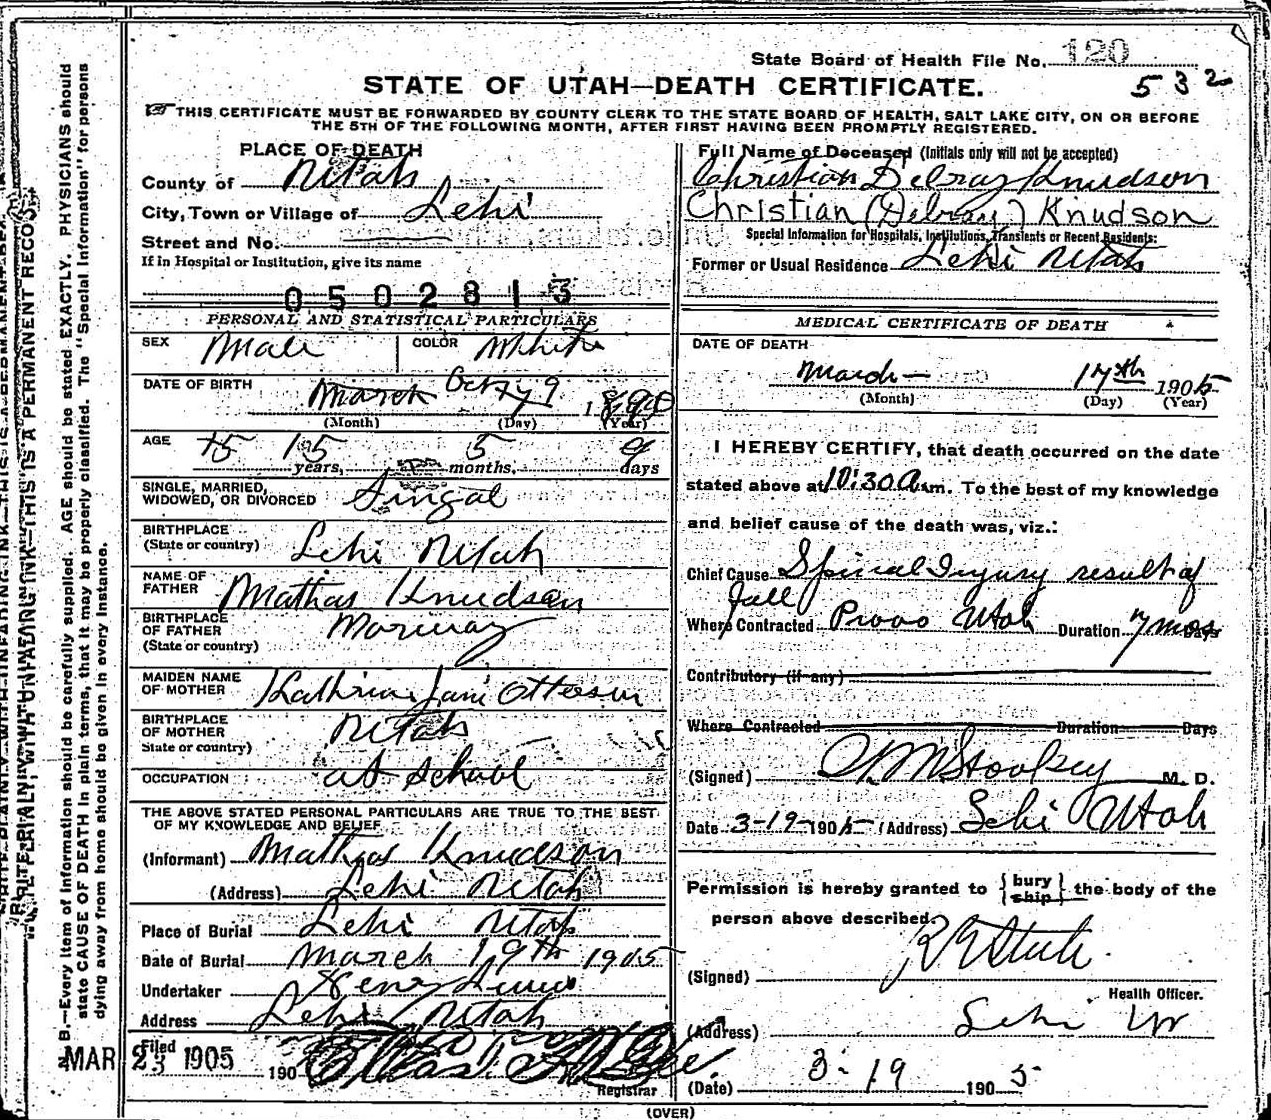 State Board of Health File No. 120
532
STATE OF UTAH—DEATH CERTIFICATE.
THIS CERTIFICATE MUST BE FORWARDED BY COUNTY CLERK TO THE STATE BOARD OF HEALTH, SALT LAKE CITY, ON OR BEFORE
THE 5TH OF THE FOLLOWING MONTH, AFTER FIRST HAVING BEEN PROMPTLY REGISTERED.
PLACE OF DEATH
County of Utah
City, Town or Village of Lehi
Street and No.
If in Hospital or Institution, give its name
0502813
Full Name of Deceased (Initials only will not be accepted)
Christian Delray Knudson
Christian (Delray) Knudson
Special Information for Hospitals, Institutions, Transients or Recent Residents:
Former or Usual Residence Lehi Utah
PERSONAL AND STATISTICAL PARTICULARS
SEX Male COLOR White
DATE OF BIRTH March Oct 9 1890
(Month) (Day) (Year)
AGE 15 15 years, 5 months, 9 days
SINGLE, MARRIED,
WIDOWED, OR DIVORCED Singal
BIRTHPLACE
(State or country) Lehi Utah
NAME OF
FATHER Mathas Knudson
BIRTHPLACE
OF FATHER
(State or country) Norway
MAIDEN NAME
OF MOTHER Kathrina Jani Otteson
BIRTHPLACE
OF MOTHER
State or country) Utah
OCCUPATION at school
THE ABOVE STATED PERSONAL PARTICULARS ARE TRUE TO THE BEST
OF MY KNOWLEDGE AND BELIEF
(Informant) Mathas Knudson
(Address) Lehi Utah
Place of Burial Lehi Utah
Date of Burial March 19th 1905
Undertaker Henry Lewis
Address Lehi Utah
Filed MAR 23 1905 190
Registrar
MEDICAL CERTIFICATE OF DEATH
DATE OF DEATH
March 17th 1905
(Month) (Day) (Year)
I HEREBY CERTIFY, that death occurred on the date
stated above at 10:30 A.m. To the best of my knowledge
and belief cause of the death was, viz.:
Chief Cause Spinal Injury result of
fall
Where Contracted Provo Utah Duration 7 mos Days
Contributory (if any)
Where Contracted Duration Days
(Signed) Stookey M. D.
Date 3-19-1905 (Address) Lehi Utah
Permission is hereby granted to {bury ship} the body of the
person above described.
(Signed)
Health Officer.
(Address) Lehi Ut
(Date) 3-19 1905
(OVER)
N. B.—Every item of information should be carefully supplied. AGE should be stated EXACTLY. PHYSICIANS should
state CAUSE OF DEATH in plain terms, that it may be properly classified. The "Special Information" for persons
dying away from home should be given in every instance.
WRITE PLAINLY, WITH UNFADING INK—THIS IS A PERMANENT RECORD.